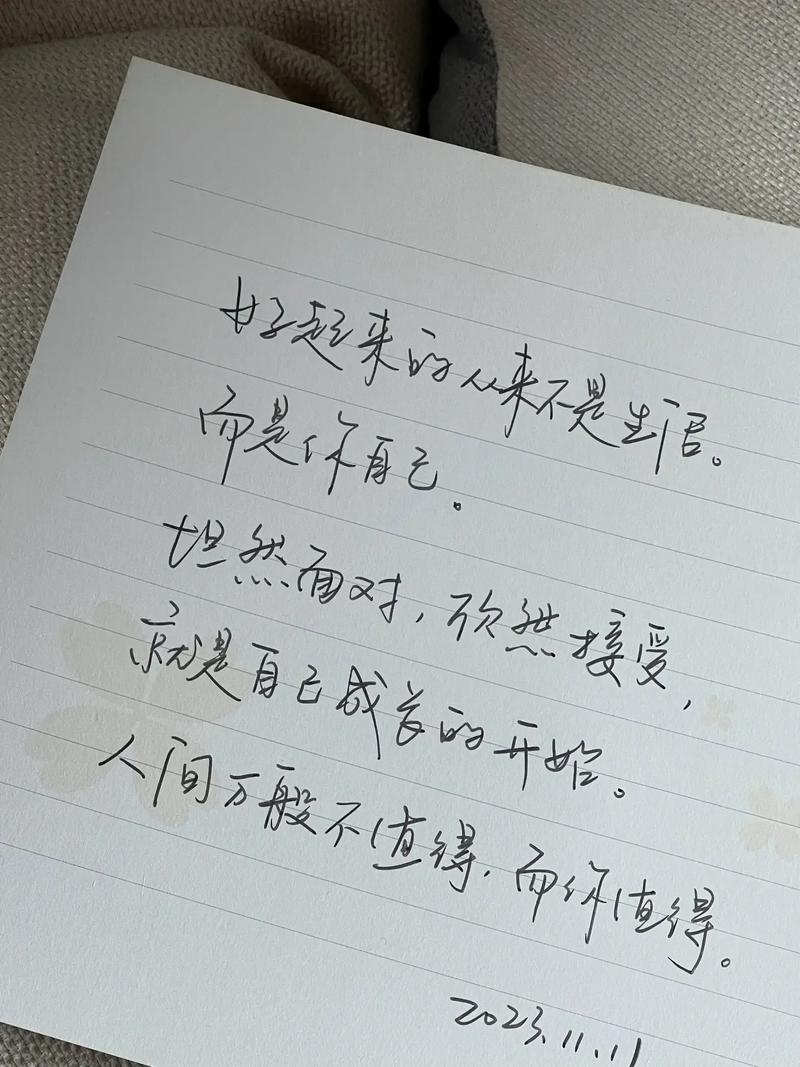 好起来的从来不是生活。
而是你自己。
坦然面对，欣然接受，
就是自己成长的开始。
人间万般不值得，而你值得。
2023.11.11